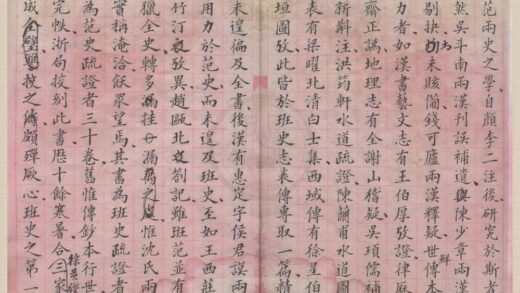 范兩史之學自顏李二注後研究於斯者
然吳斗南兩漢刊誤補遺與陳少章兩漢
剔抉未賅備錢可廬兩漢釋疑世傳鮮本
力者如漢書藝文志有王伯厚攷證律厤
齋正譌地理志有全謝山稽疑吳頊儒補
新斠注洪筠軒水道疏證陳蘭甫水道圖
表有梁曜北清白士集西域傳有徐星伯
垣圖攷此皆於班史志表傳專取一篇精
未遑徧及全書後漢有惠定宇侯君謨兩
用力於范史而未遑及班史至如王西莊
竹汀攷異趙甌北劄記雖班范並有
獵全史轉多挂漏萬之虞惟沈氏兩
實稱淹洽餘眾望焉其書為班史疏證者
為范史疏證者三十卷舊惟傳鈔本行世
完帙浙局校刻此書厯十餘寒暑合二家
成全璧之俻頗殫厥心班史之第一